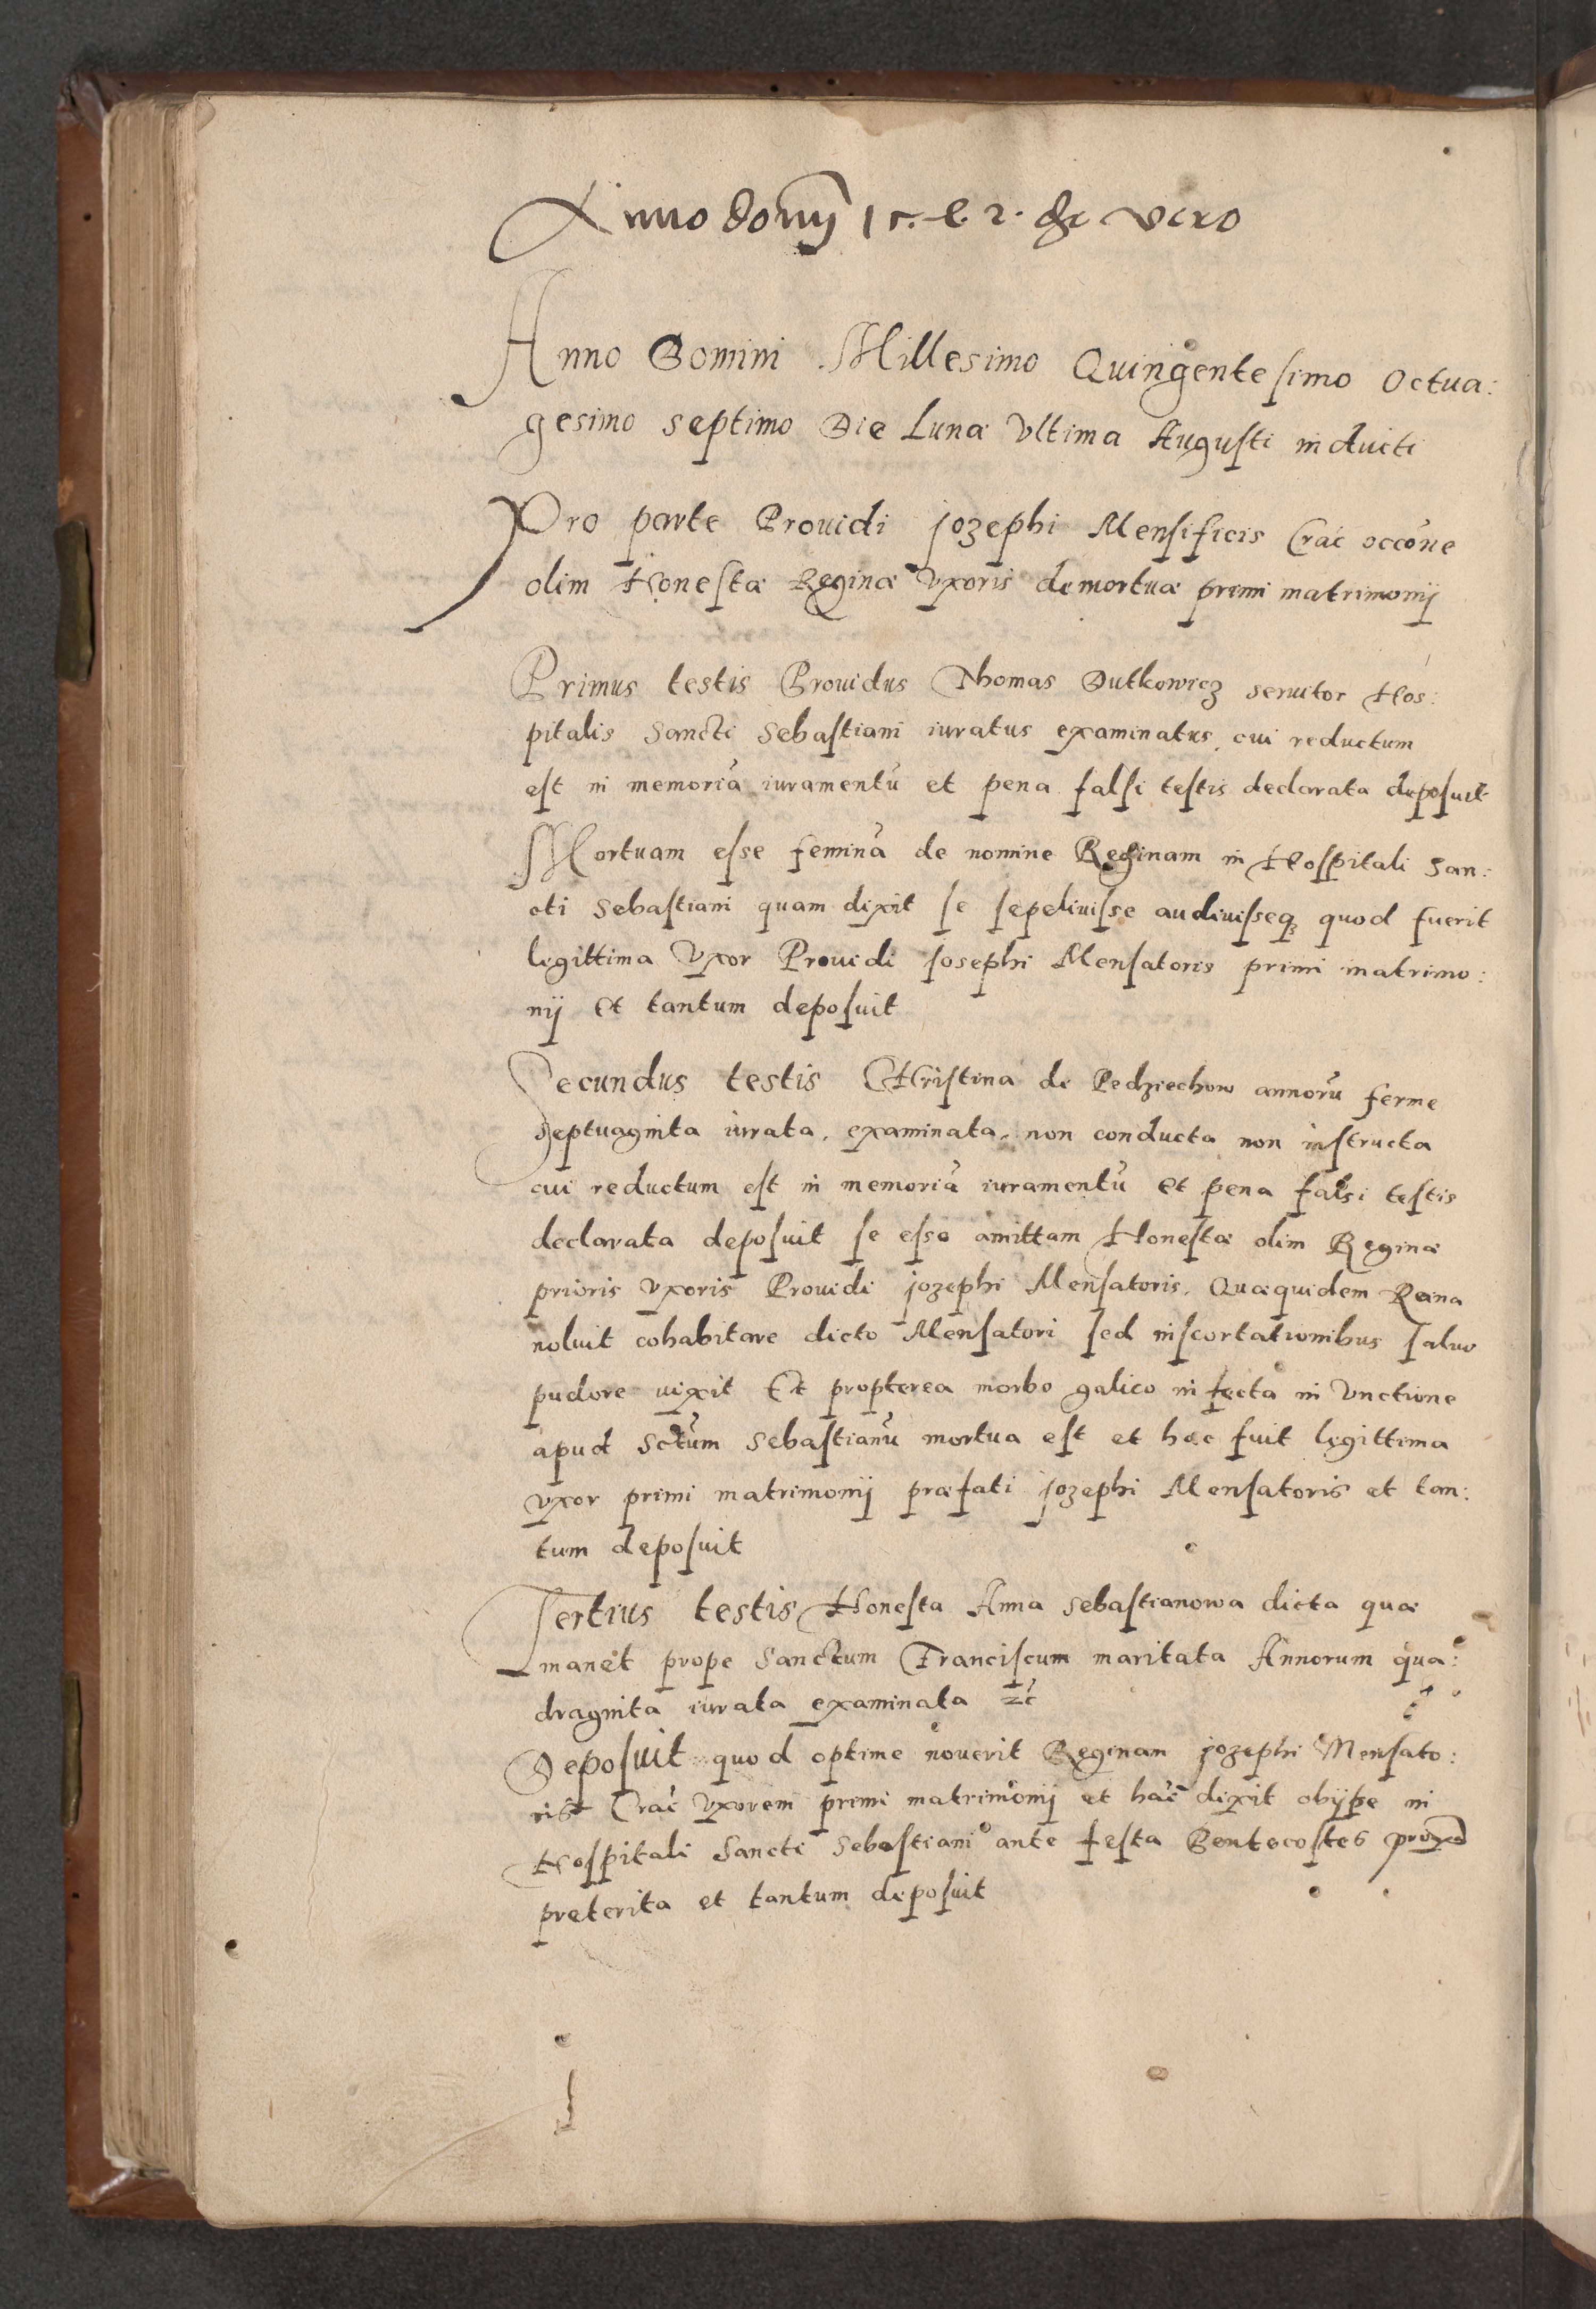 Anno domij
Anno Domini Millesimo Quingentesimo Octua:
gesimo septimo Die Lunæ Vltima Augusti inducti
Pro parte Prouidi jozephi Mensificis Crac̃ occõne
olim Honestæ Reginæ Vxoris demortuæ primi matrimonij
Primus testis Prouidus Thomas Dutkowicz seruitor Hos:
pitalis Sancti Sebastiani iuratus examinatus, cui reductum
est in memoriã iuramentũ et pena falsi testis declarata deposuit
Mortuam esse feminã de nomine Reginam in Hospitali San:
cti Sebastiani quam dixit se sepeliuisse audiuisseq quod fuerit
legittima Vxor Prouidi Josephi Mensatoris primi matrimo:
nij Et tantum deposuit
Secundus testis Christina de Pedziechow annorũ ferme
septuaginta iurata, examinata, non conducta non instructa
cui reductum est in memoriã iuramentũ et pena falsi testis
declarata deposuit se esse amittam Honestæ olim Reginæ
prioris vxoris Prouidi jozephi Mensatoris, Quæquidem Reina
noluit cohabitare dicto Mensatori sed inscortationibus saluo
pudore vixit Et propterea morbo galico infecta in Vnctione
apud Sctũm Sebastianũ mortua est et hæc fuit legittima
vxor primi matrimonij præfati jozephi Mensatoris et tan:
tum deposuit
Tertius testis Honesta Anna Sebastianowa dicta quæ
manet prope Sanctum Franciscum maritata Annorum qua:
draginta iurata examinata &c̃
Deposuit quod optime nouerit Reginam jozephi Mensato:
ris Crac̃ Vxorem primi matrimonij et hãc dixit obijsse in
Hospitali Sancti Sebastiani ante festa Pentecostes
preterita et tantum deposuit